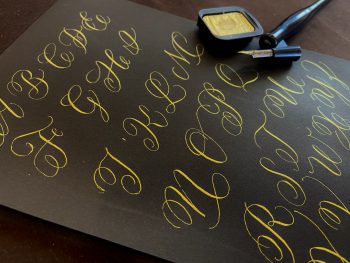 A B C D E
F G H I
J K L M
N O P Q
R S T U
V W